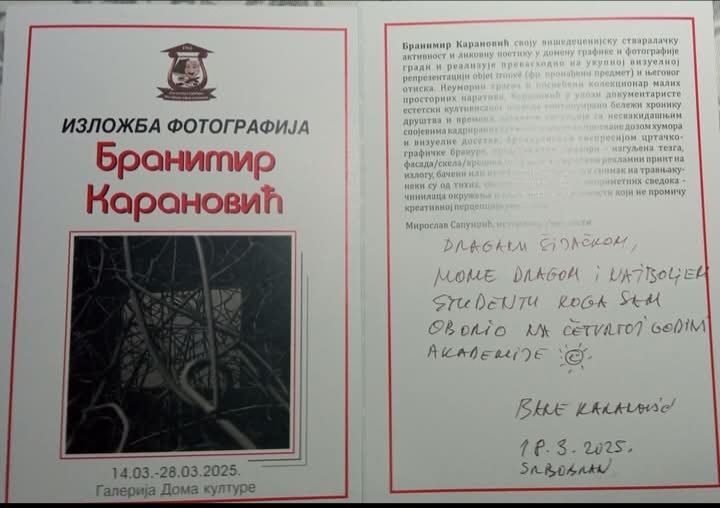 ИЗЛОЖБА ФОТОГРАФИЈА
Бранимир
Карановић
14.03.-28.03.2025.
Галерија Дома културе
Бранимир Карановић своју вишедеценијску стваралачку
активност и ликовну поетику у домену графике и фотографије
гради и реализује превасходно на укупној визуелној
репрезентацији objet trouvé (фр. пронађени предмет) и његовог
отиска. Неуморни трагач и посвећени колекционар малих
просторних наратива, Карановић у улози документаристе
естетски култивисаног бележи хронику
друштва и времена несвакидашњим
спојевима кадрираних дозом хумора
и визуелне досетке. експресијом цртачко-
графичке бравуре, изгужлена тезга,
фасада/скела/ рекламни принт на
излогу, бачени или снимак на травњаку-
неки су од тихих, сведока -
чинилаца окружења и који не промичу
креативној перцепцији
Мирослав Сапунџић,
DRAGANU ČIJAČKOM,
MOME DRAGOM I NAJBOLJEM
STUDENTU KOGA SAM
OBORIO NA ČETVRTOJ GODINI
AKADEMIJE
BANE KARANOVIĆ
18.3.2025.
SRBOBRAN